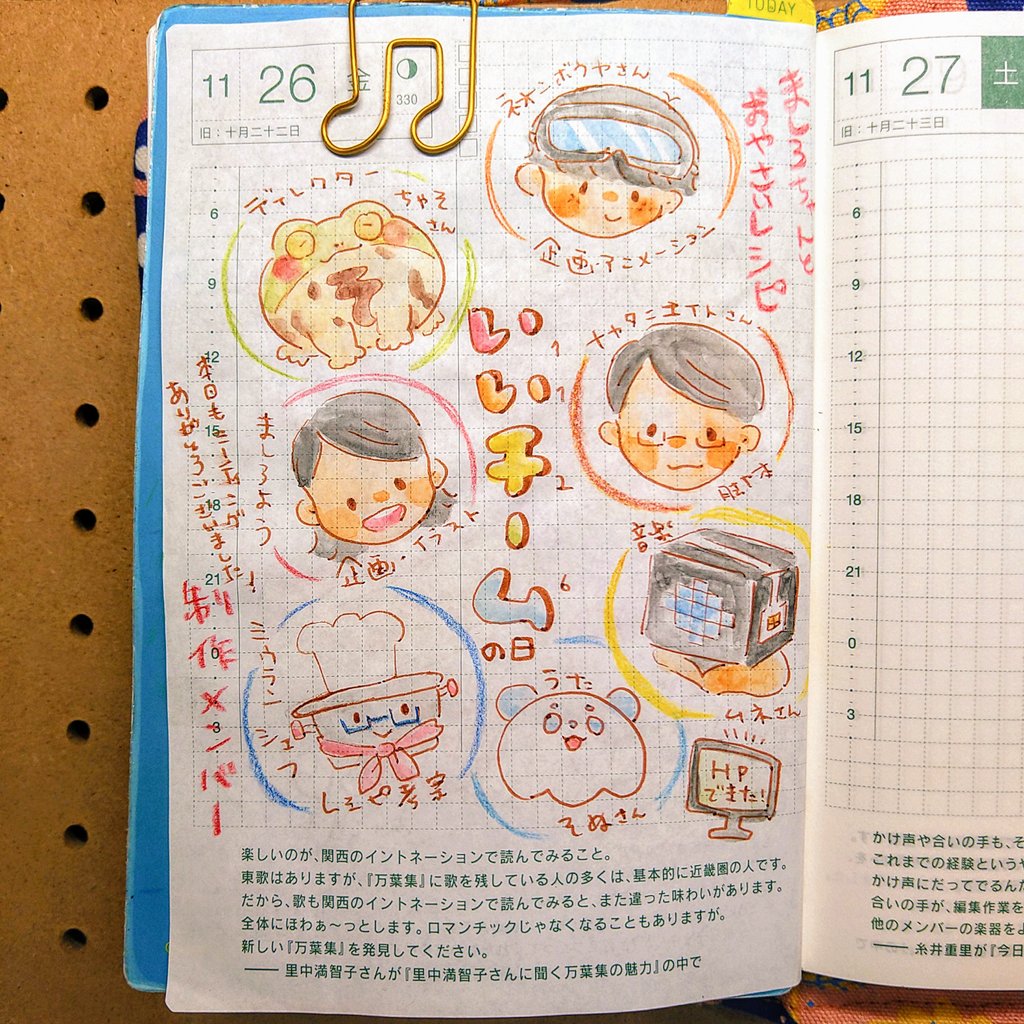 TODAY
11 26 金
330
旧：十月二十二日
ネオンボウヤさん
企画・アニメーション
ましろちゃんと
おやさいレシピ
ディレクター
ちゃそ
さん
そ
いいチームの日
1 1 2 6
ナカタニエイトさん
本日もミーティング
ありがとうございました!
ましろよう
企画・イラスト
音楽
ムネさん
制作メンバー
ミシュラン
シェフ
レシピ考案
うた
そぬさん
HP
できた!
6
9
12
15
18
21
0
3
楽しいのが、関西のイントネーションで読んでみること。
東歌はありますが、『万葉集』に歌を残している人の多くは、基本的に近畿圏の人です。
だから、歌も関西のイントネーションで読んでみると、また違った味わいがあります。
全体にほわぁ〜っとします。ロマンチックじゃなくなることもありますが。
新しい『万葉集』を発見してください。
―― 里中満智子さんが『里中満智子さんに聞く万葉集の魅力』の中で
11 27 土
旧：十月二十三日
6
9
12
15
18
21
0
3
かけ声や合いの手も、そ
これまでの経験という
かけ声にだってでるんだ
合いの手が、編集作業を
他のメンバーの楽器をよ
―― 糸井重里が『今日